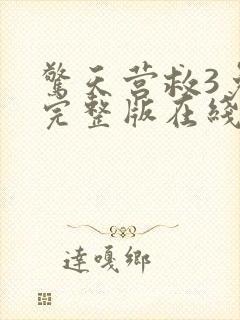 驚天营救3免
完整版在綫
達嘎鄉